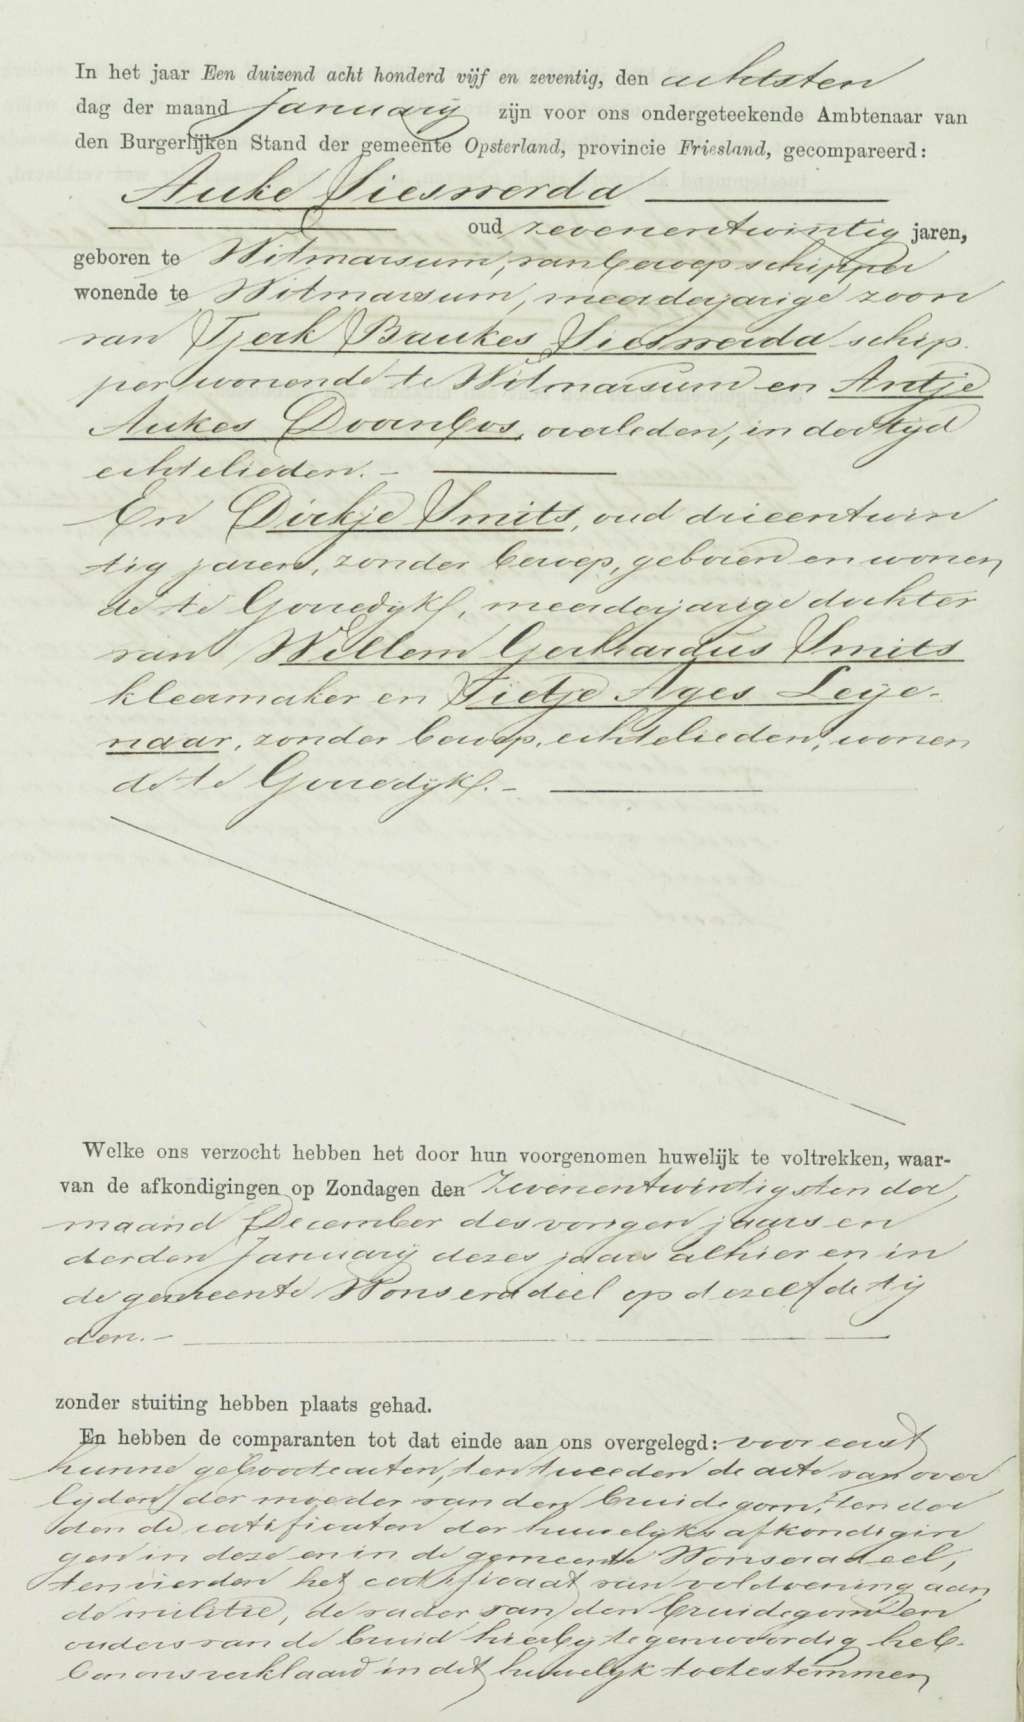 In het jaar Een duizend acht honderd vijf en zeventig, den achtsten
dag der maand Januarij zijn voor ons ondergeteekende Ambtenaar van
den Burgerlijken Stand der gemeente Opsterland, provincie Friesland, gecompareerd:
Auke Sieswerda
oud zevenentwintig jaren,
geboren te Witmarsum, van beroep schipper
wonende te Witmarsum, meerderjarige zoon
van Tjerk Baukes Sieswerda schip-
per wonende te Witmarsum en Antje
Aukes Doornbos, overleden, in der tijd
echtelieden.-
En Dirkje Smits, oud drieentwin
tig jaren, zonder beroep, geboren en wonen
de te Gorredijk, meerderjarige dochter
van Willem Gerhardus Smits
kleermaker en Tietje Ages Leije-
naar, zonder beroep, echtelieden, wonen
de te Gorredijk.-
Welke ons verzocht hebben het door hun voorgenomen huwelijk te voltrekken, waar-
van de afkondigingen op Zondagen den Zevenentwintigsten der
maand December des vorigen jaars en
derden Januarij dezes jaars alhier en in
de gemeente Wonseradeel op dezelfde tij
den.-
zonder stuiting hebben plaats gehad.
En hebben de comparanten tot dat einde aan ons overgelegd: voor eerst
hunne geboorteacten, ten tweeden de acte van over
lijden der moeder van den bruidegom, ten der
den de certificaten der huwelijks afkondigin
gen in deze en in de gemeente Wonseradeel,
ten vierden het certificaat van voldoening aan
de militie, de vader van den bruidegom en
ouders van de bruid hierbij tegenwoordig heb-
ben ons verklaard in dit huwelijk toetestemmen